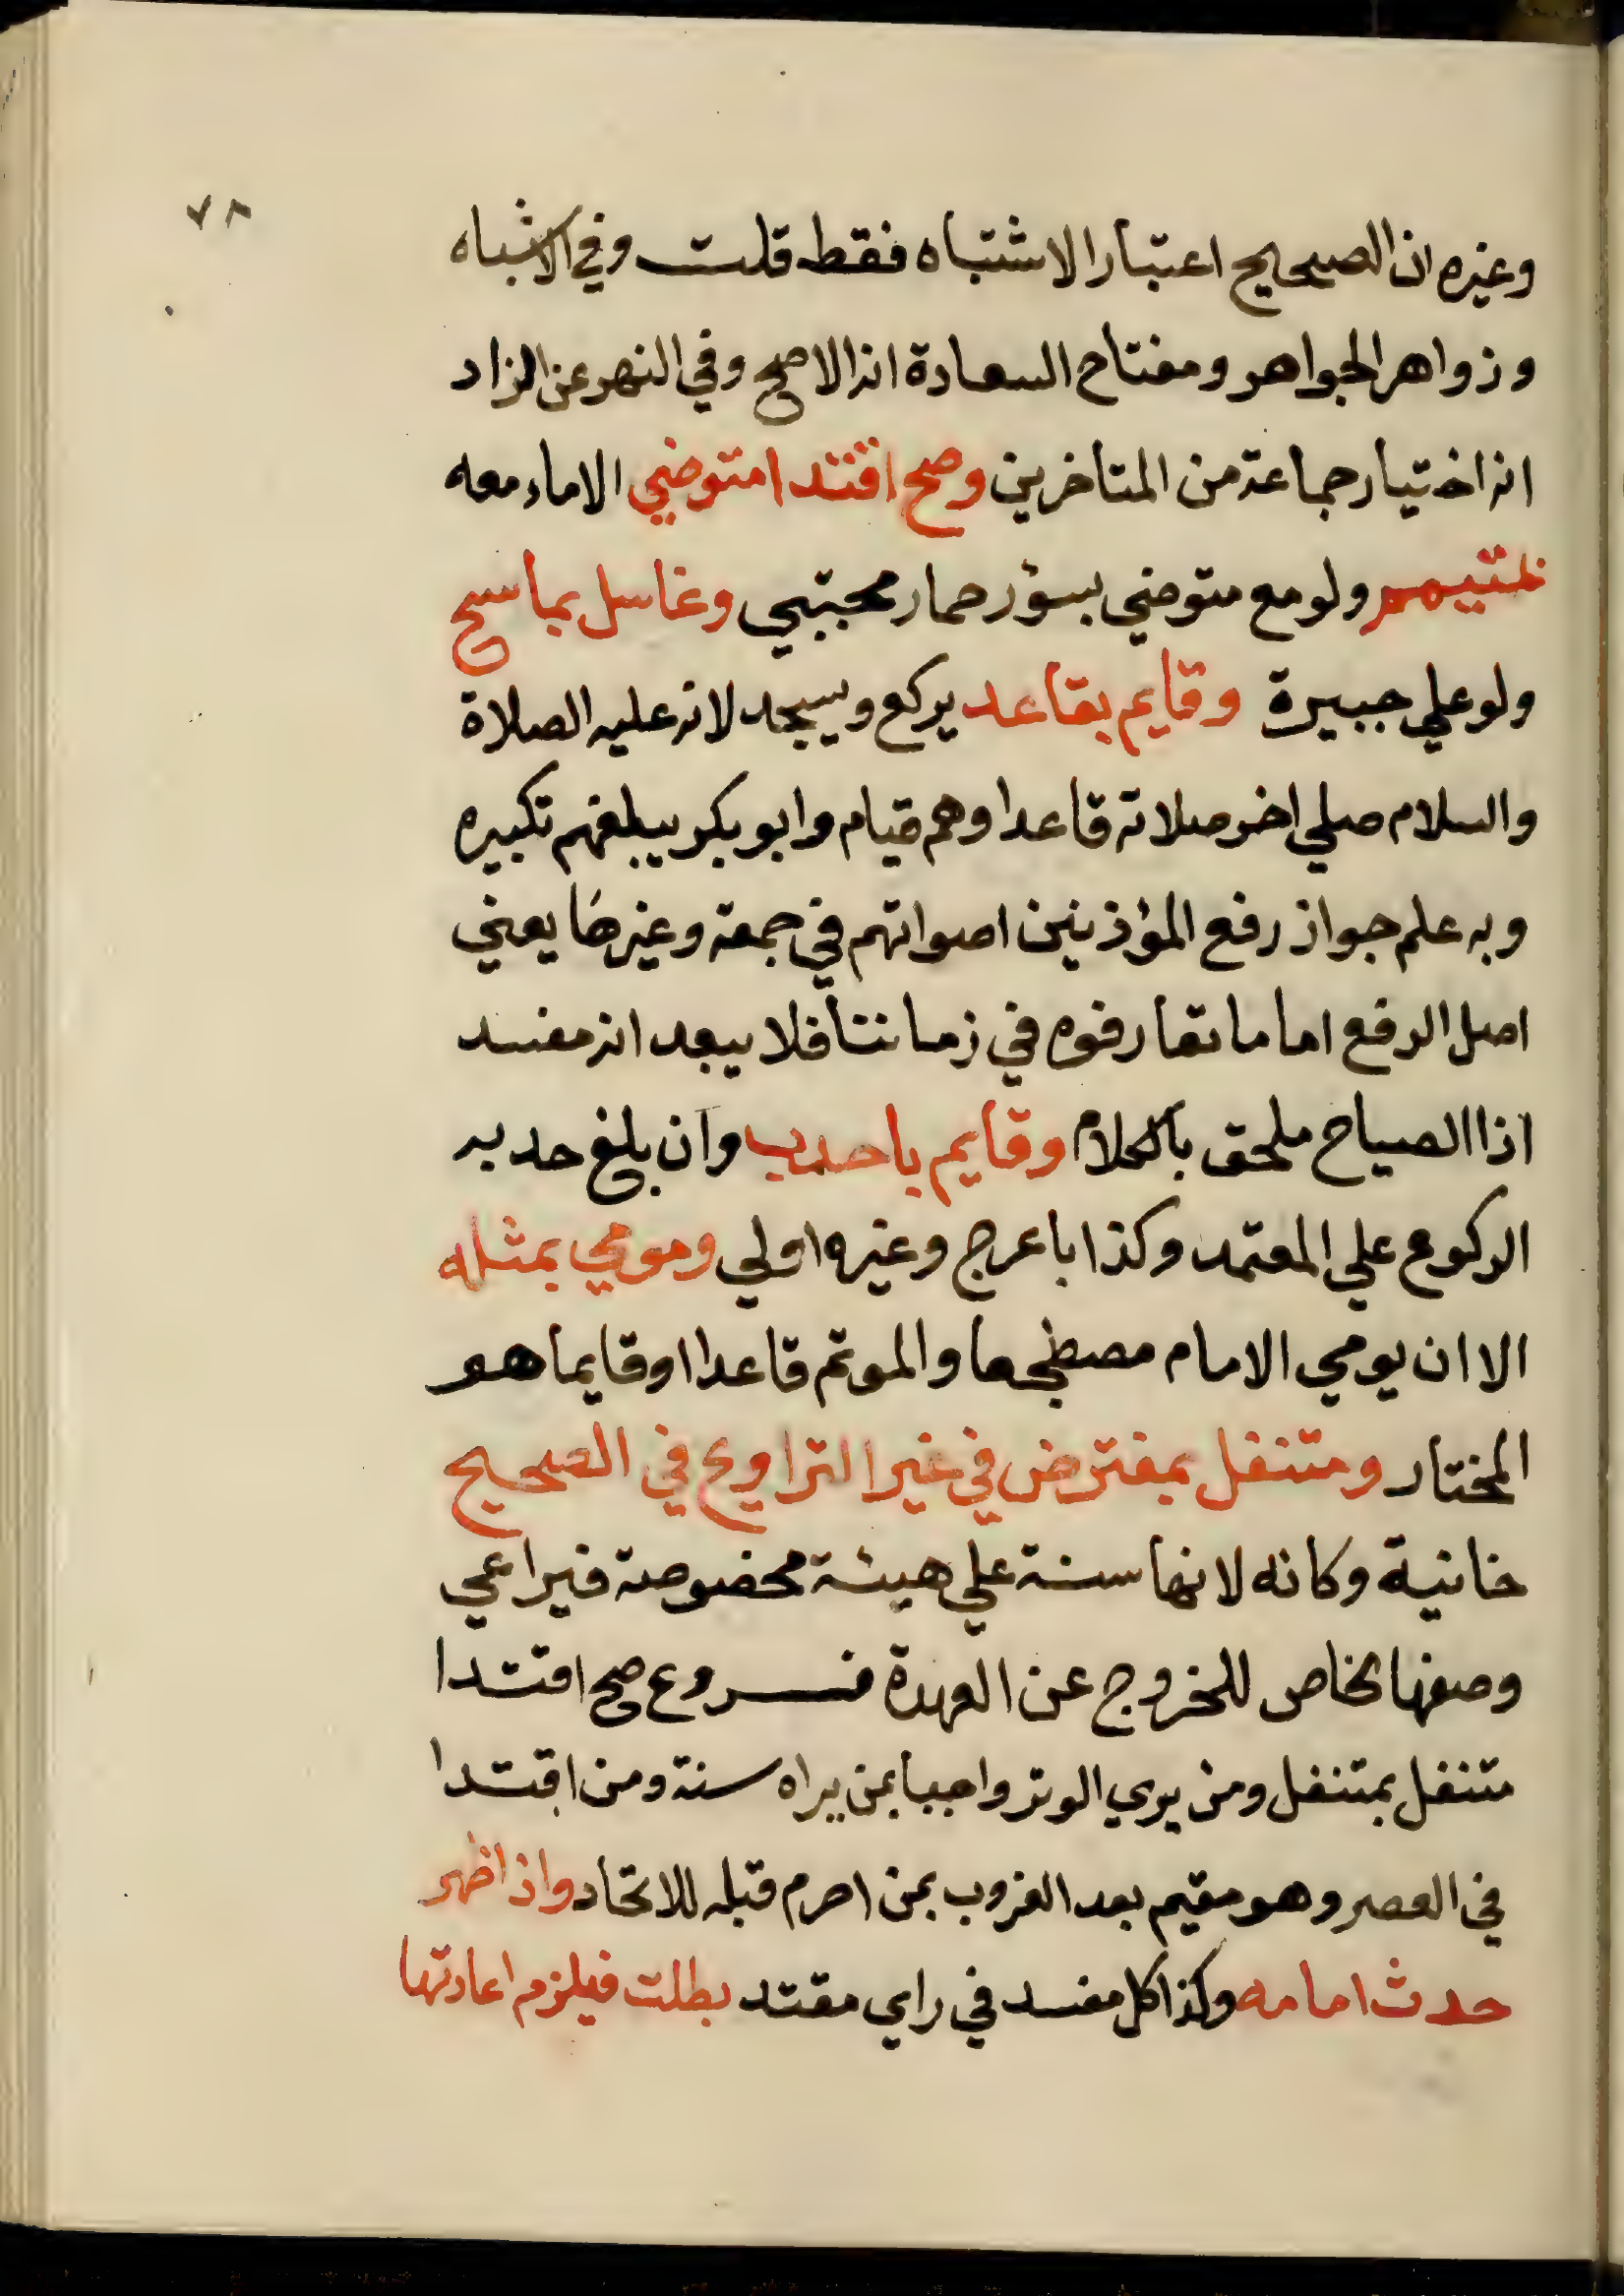 ٧٨
وغيره ان الصحيح اعتبار الاشتباه فقط قلت وفي الاشباه
وزواهر الجواهر ومفتاح السعادة انه الاصح وفي النهر عن الزاد
انه اختيار جماعة من المتاخرين وصح اقتدا متوضي الاماء معه
بمتيمم ولو مع متوضي بسؤر حمار مجتبي وغاسل بماسح
ولو علي جبيرة وقايم بقاعد يركع ويسجد لانه عليه الصلاة
والسلام صلي اخر صلاته قاعدا وهم قيام وابو بكر يبلغهم تكبيره
وبه علم جواز رفع المؤذنين اصواتهم في جمعة وغيرها يعني
اصل الرفع اما ما تعارفوه في زماننا فلا يبعد انه مفسد
اذا الصياح ملحق بالكلام وقايم باحدب وان بلغ حدبه
الركوع علي المعتمد وكذا باعرج وغيره اولي ومومي بمثله
الا ان يومي الامام مضطجعا والموتم قاعدا اوقايما هو
المختار ومتنفل بمفترض في غير التراويح في الصحيح
خانية وكانه لانها سنة علي هيئة مخصوصة فيراعي
وصفها الخاص للخروج عن العهدة فروع صح اقتدا
متنفل بمتنفل ومن يري الوتر واجبا بمن يراه سنة ومن اقتدا
في العصر وهو مقيم بعد الغروب بمن احرم قبله للاتحاد واذا ظهر
حدث امامه وكذا كل مفسد في راي مقتد بطلت فيلزم اعادتها